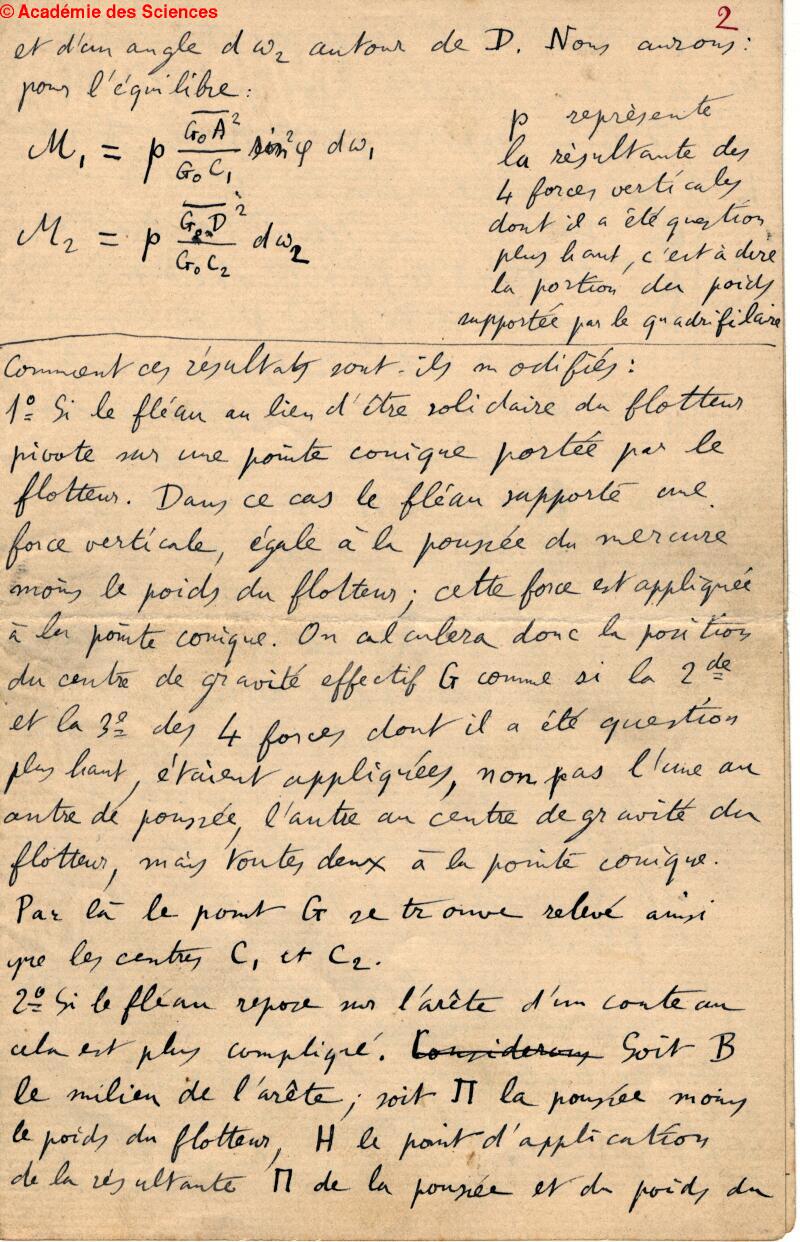 © Académie des Sciences
2
et d'un angle dω₂ autour de D. Nous aurons:
pour l'équilibre:
M₁ = p \frac{\overline{G₀A}²}{G₀C₁} sin²φ dω₁
M₂ = p \frac{\overline{G₀D}²}{G₀C₂} dω₂
p représente
la résultante des
4 forces verticales
dont il a été question
plus haut, c'est à dire
la portion du poids
supportée par le quadrifilaire
Comment ces résultats sont-ils modifiés:
1º Si le fléau au lieu d'être solidaire du flotteur
pivote sur une pointe conique portée par le
flotteur. Dans ce cas le fléau supporte une
force verticale, égale à la poussée du mercure
moins le poids du flotteur; cette force est appliquée
à la pointe conique. On calculera donc la position
du centre de gravité effectif G comme si la 2de
et la 3e des 4 forces dont il a été question
plus haut, étaient appliquées, non pas l'une au
centre de poussée, l'autre au centre de gravité du
flotteur, mais toutes deux à la pointe conique.
Par là le point G se trouve relevé ainsi
que les centres C₁ et C₂.
2º Si le fléau repose sur l'arête d'un couteau
cela est plus compliqué. Considerons Soit B
le milieu de l'arête; soit Π la poussée moins
le poids du flotteur, H le point d'application
de la résultante Π de la poussée et du poids du